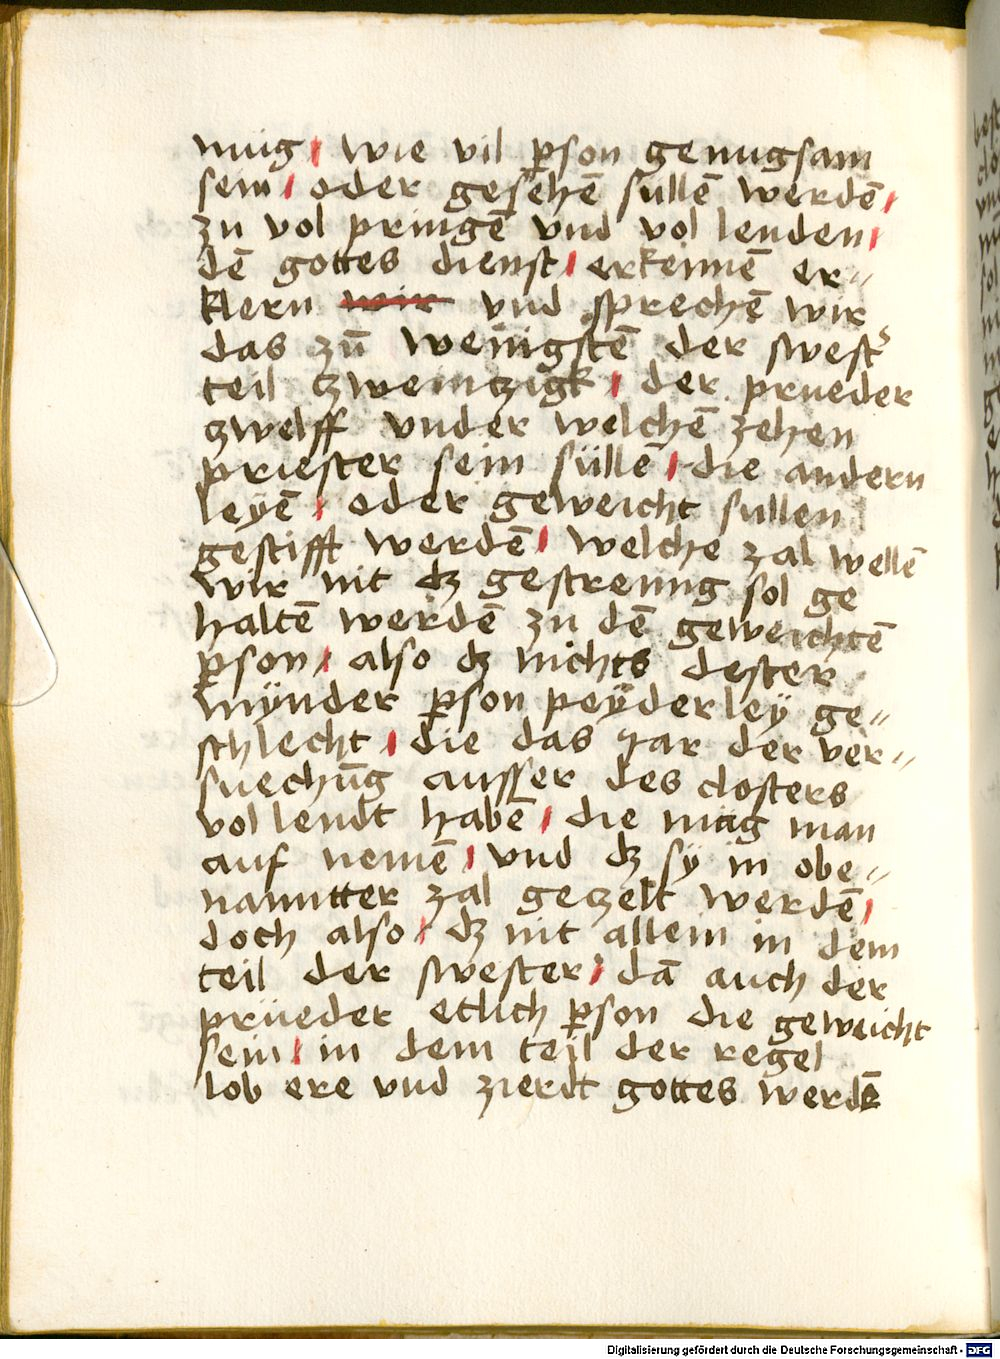 mug / wie vil ꝑson genugsam
sein / oder gesehē sullē werdē /
zu vol pringē vnd vol lenden /
dē gottes dienst / erkennē er〃
klern wir vnd sprechē wir
das zū wenigstē der swestˢ
teil tzweintzigk / der prueder
zwelff vnder welchē zehen
priester sein süllē / die andern
leyē / oder geweicht sullen
gestifft werdē / welche zal wellē
wir nit dz gestreung sol ge
haltē werdē zu dē geweichtē
ꝑson / also dz nichts dester
mÿnder ꝑson peÿderleÿ ge〃
schlecht / die das Jar der ver〃
suechūg ausser des closters
vol lendt habē / die mag man
auf nemē / vnd dz sÿ in obe〃
nanntter zal gezelt werdē /
doch also / dz nit allein in dem
teil der swester / dā auch der
prüeder etlich ꝑson die geweicht
sein / in dem teil der regel
lob ere vnd zierdt gottes werdē
Digitalisierung gefördert durch die Deutsche Forschungsgemeinschaft - DFG